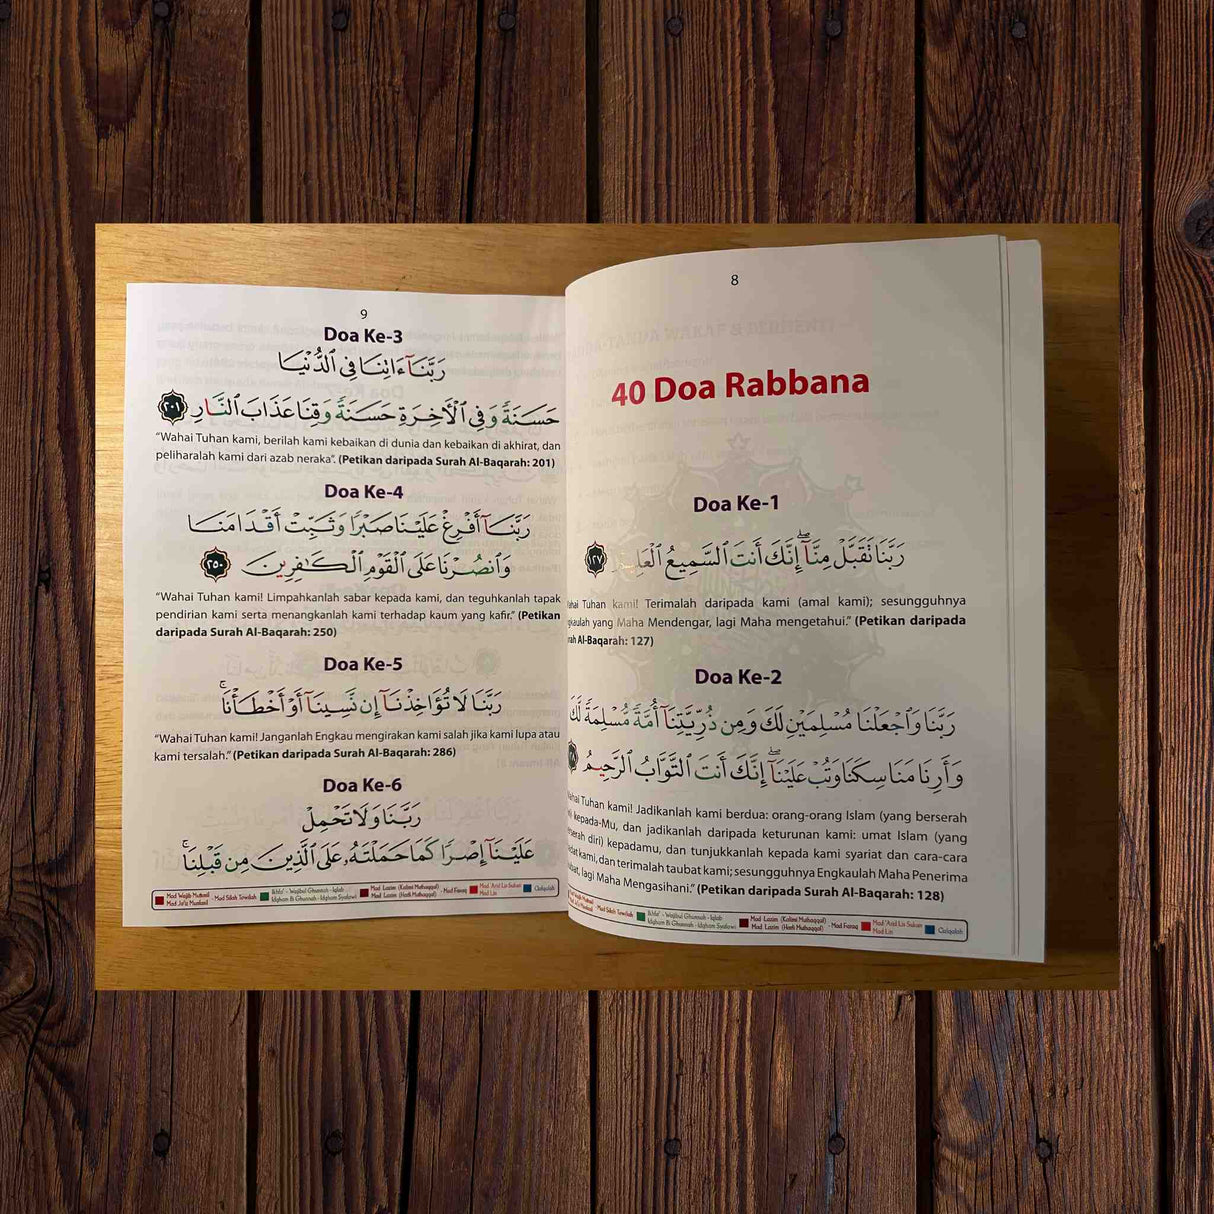 8
40 Doa Rabbana
Doa Ke-1
رَبَّنَا تَقَبَّلْ مِنَّآ ۖ إِنَّكَ أَنتَ ٱلسَّمِيعُ ٱلْعَلِيمُ ١٢٧
Tuhan kami! Terimalah daripada kami (amal kami); sesungguhnya
yang Maha Mendengar, lagi Maha mengetahui.” (Petikan daripada
Al-Baqarah: 127)
Doa Ke-2
رَبَّنَا وَٱجْعَلْنَا مُسْلِمَيْنِ لَكَ وَمِن ذُرِّيَّتِنَآ أُمَّةً مُّسْلِمَةً لَّكَ
وَأَرِنَا مَنَاسِكَنَا وَتُبْ عَلَيْنَآ ۖ إِنَّكَ أَنتَ ٱلتَّوَّابُ ٱلرَّحِيمُ
Tuhan kami! Jadikanlah kami berdua: orang-orang Islam (yang berserah
kepada-Mu, dan jadikanlah daripada keturunan kami: umat Islam (yang
diri) kepadamu, dan tunjukkanlah kepada kami syariat dan cara-cara
kami, dan terimalah taubat kami; sesungguhnya Engkaulah Maha Penerima
lagi Maha Mengasihani.” (Petikan daripada Surah Al-Baqarah: 128)
Mad Wajib Muttasil
Mad Ja'iz Munfasil
- Mad Silah Tawilah
Ikhfa' - Wajibul Ghunnah - Iqlab
Idgham Bi Ghunnah - Idgham Syafawi
Mad Lazim (Kalimi Muthaqqal)
Mad Lazim (Harfi Muthaqqal)
- Mad Faraq
Mad 'Arid Lis Sukun
Mad Lin
Qalqalah
9
Doa Ke-3
رَبَّنَآ ءَاتِنَا فِى ٱلدُّنْيَا
حَسَنَةً وَفِى ٱلْأَخِرَةِ حَسَنَةً وَقِنَا عَذَابَ ٱلنَّارِ ٢٠١
“Wahai Tuhan kami, berilah kami kebaikan di dunia dan kebaikan di akhirat, dan
peliharalah kami dari azab neraka”. (Petikan daripada Surah Al-Baqarah: 201)
Doa Ke-4
رَبَّنَآ أَفْرِغْ عَلَيْنَا صَبْرًا وَثَبِّتْ أَقْدَامَنَا
وَٱنصُرْنَا عَلَى ٱلْقَوْمِ ٱلْكَٰفِرِينَ ٢٥٠
“Wahai Tuhan kami! Limpahkanlah sabar kepada kami, dan teguhkanlah tapak
pendirian kami serta menangkanlah kami terhadap kaum yang kafir.” (Petikan
daripada Surah Al-Baqarah: 250)
Doa Ke-5
رَبَّنَا لَا تُؤَاخِذْنَآ إِن نَّسِينَآ أَوْ أَخْطَأْنَا ۚ
“Wahai Tuhan kami! Janganlah Engkau mengirakan kami salah jika kami lupa atau
kami tersalah.” (Petikan daripada Surah Al-Baqarah: 286)
Doa Ke-6
رَبَّنَا وَلَا تَحْمِلْ
عَلَيْنَآ إِصْرًا كَمَا حَمَلْتَهُۥ عَلَى ٱلَّذِينَ مِن قَبْلِنَا ۚ
Mad Wajib Muttasil
Mad Ja'iz Munfasil
- Mad Silah Tawilah
Ikhfa' - Wajibul Ghunnah - Iqlab
Idgham Bi Ghunnah - Idgham Syafawi
Mad Lazim (Kalimi Muthaqqal)
Mad Lazim (Harfi Muthaqqal)
- Mad Faraq
Mad 'Arid Lis Sukun
Mad Lin
Qalqalah